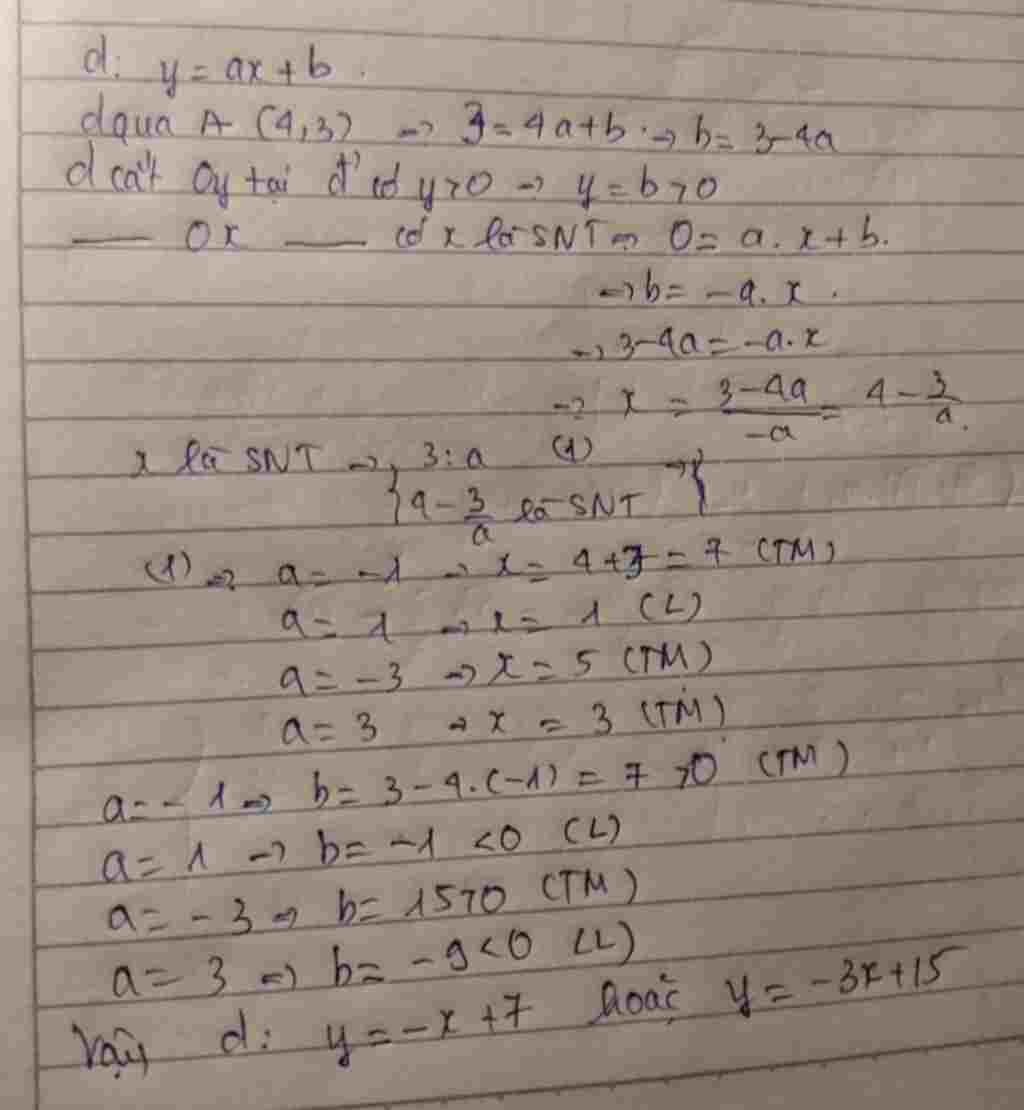 d: y = ax + b.
d qua A (4,3) → 3 = 4a + b → b = 3 - 4a
d cắt Oy tại đ' có y > 0 → y = b > 0
—— Ox —— có x là SNT → 0 = a.x + b.
→ b = -a.x.
→ 3 - 4a = -a.x
→ x = \frac{3 - 4a}{-a} = 4 - \frac{3}{a}.
x là SNT → { 3 : a (1) → {
4 - \frac{3}{a} là SNT
(1) → a = -1 → x = 4 + 3 = 7 (TM)
a = 1 → x = 1 (L)
a = -3 → x = 5 (TM)
a = 3 → x = 3 (TM)
a = -1 → b = 3 - 4.(-1) = 7 > 0 (TM)
a = 1 → b = -1 < 0 (L)
a = -3 → b = 15 > 0 (TM)
a = 3 → b = -9 < 0 (L)
Vậy d: y = -x + 7 hoặc y = -3x + 15